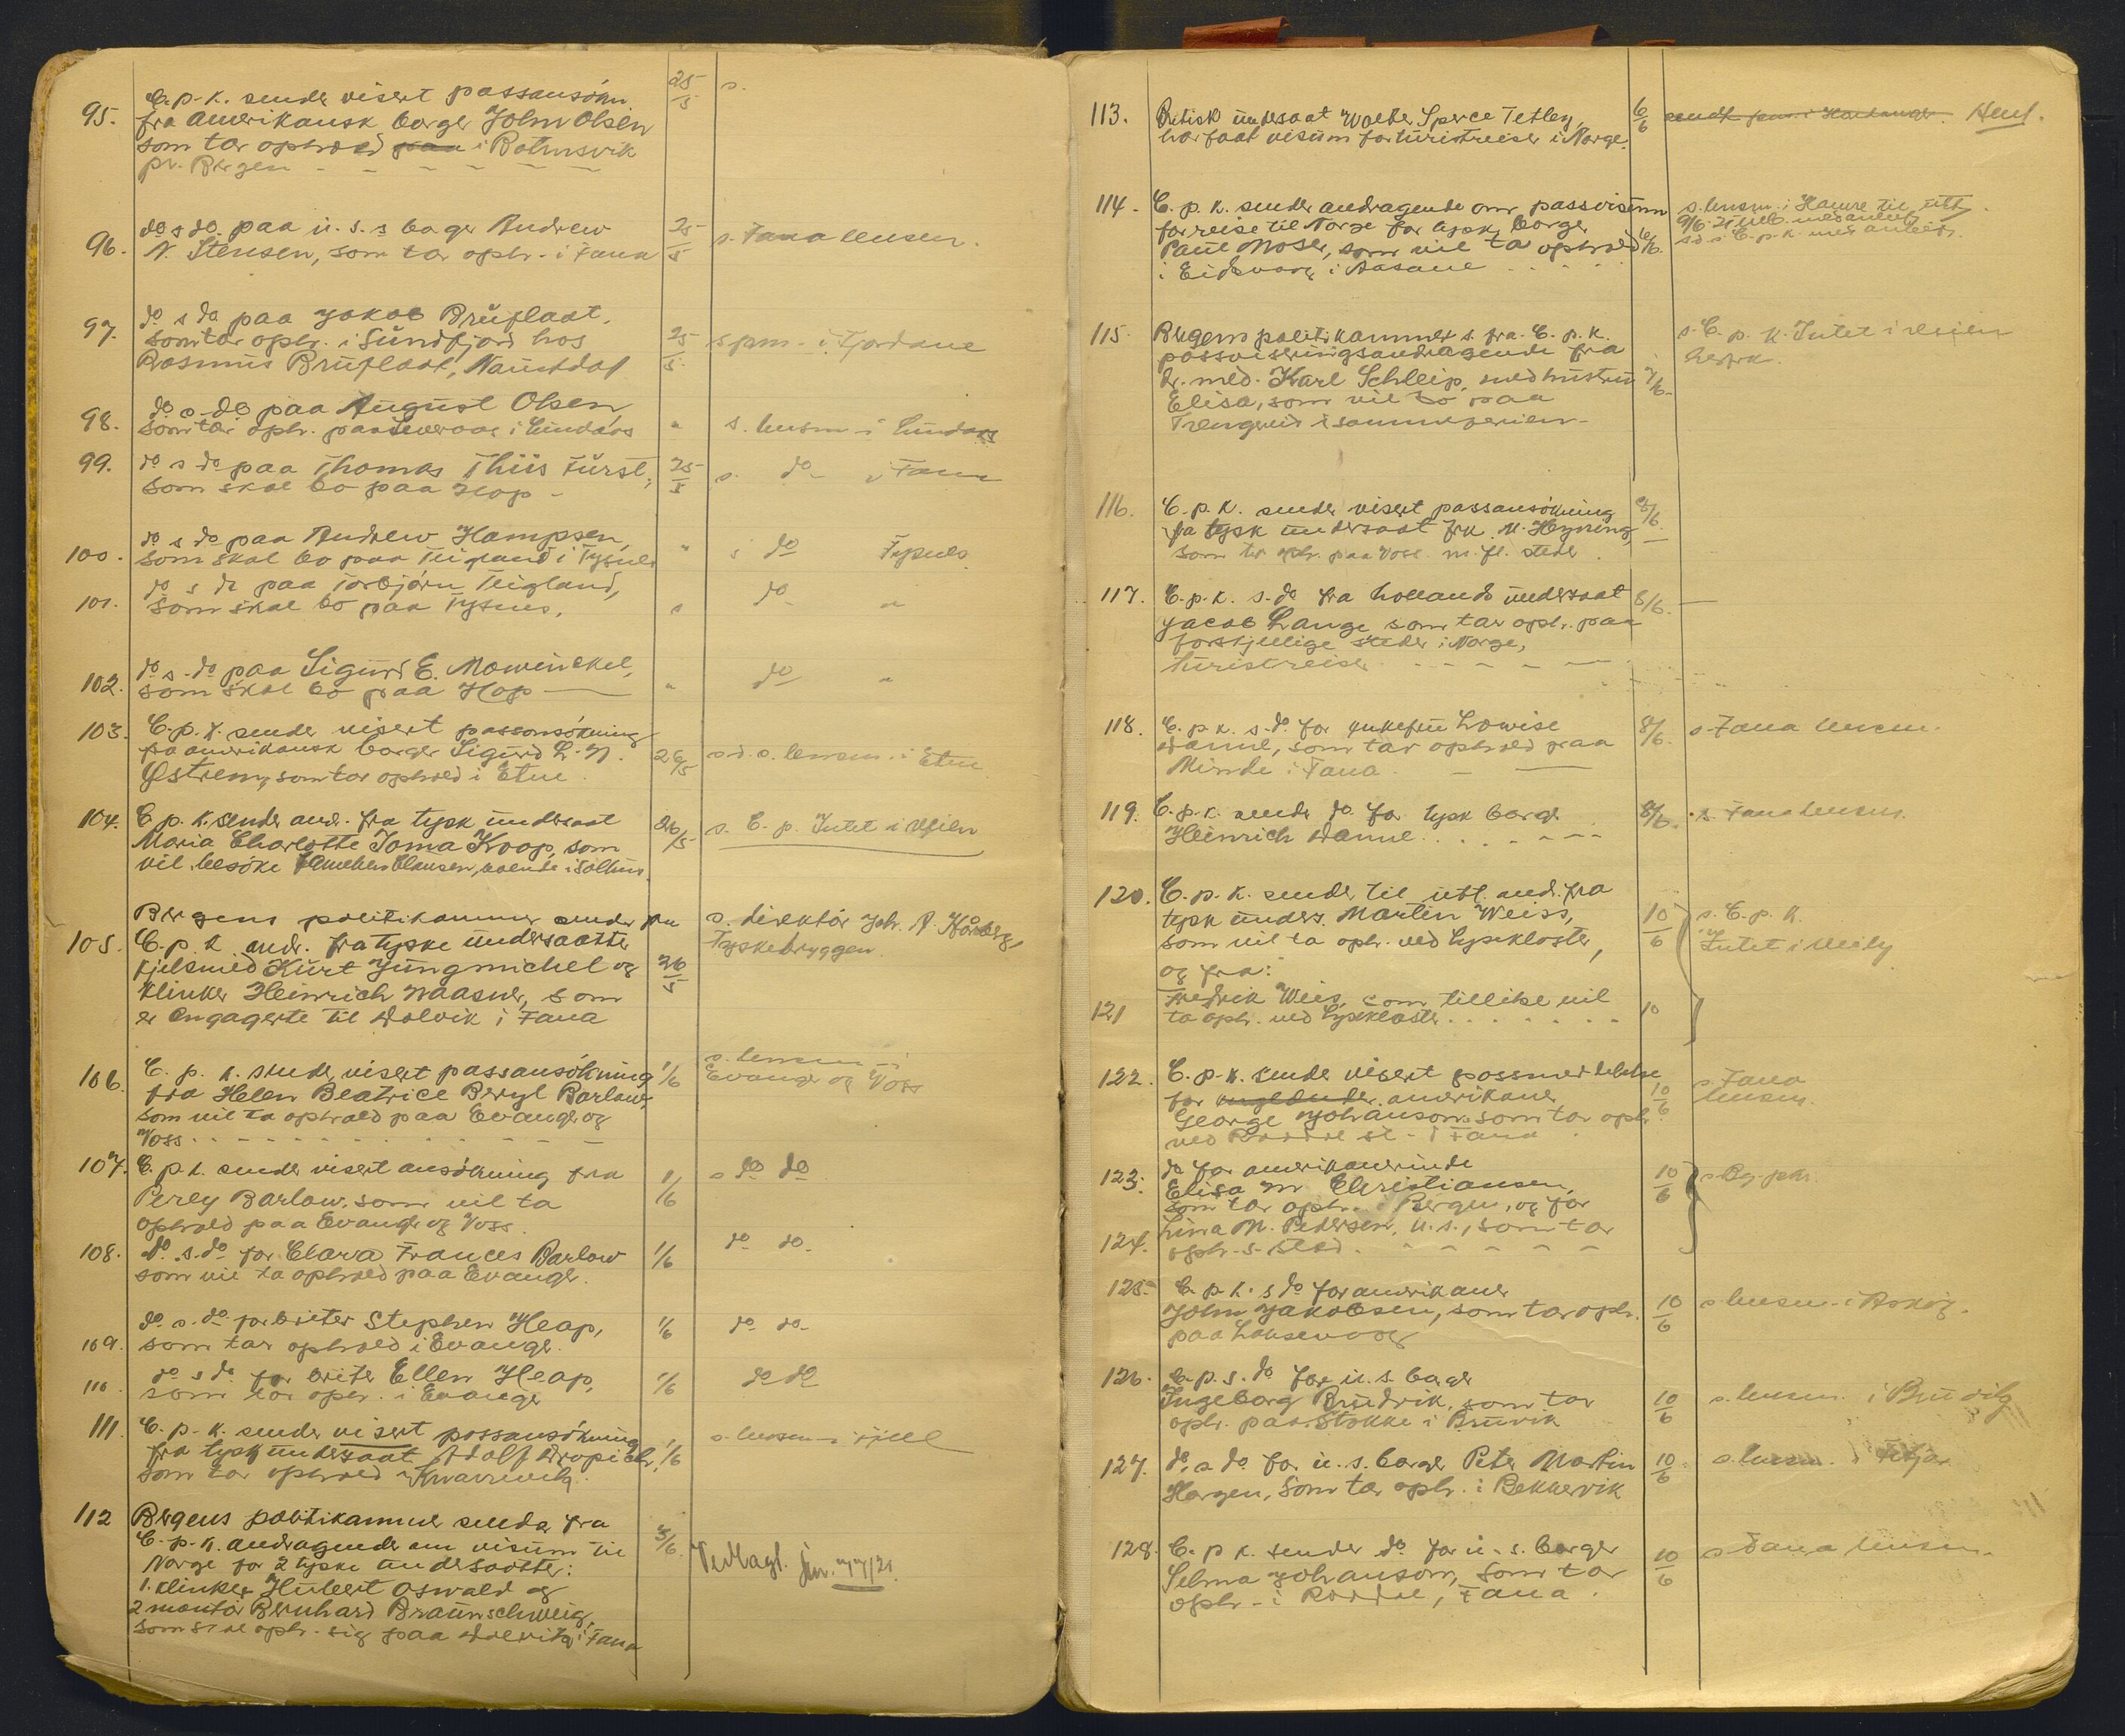 95. C. p. k. sender visert passansökn. 25/5 s.
fra amerikansk borger John Olsen
som tar ophold paa i Botnsvik
pr. Bergen
96. do s do paa u. s. s borger Andrew 25/5 s. Fana lensm.
N. Stensen, som tar oph. i Fana
97. do s do paa Jakob Brüflaat, 25/5 s pm. i Fjordane
som tar oph. i Sündfjord hos
Rasmus Brüflaat, Naustdal
98. do s do paa August Olsen, " s. lensm i Lindaas
som tar oph. paa i Lindaas
99. do s do paa Thomas Thiis Fürst, 25/5 s. do i Fana
som skal bo paa Hop
100. do s do paa Andrew Hampsen, " s do Tysnes
som skal bo paa Teigland i Tysnes
101. do s do paa Torbjörn Teigland, " do "
som skal bo paa Tysnes.
102. do s. do paa Sigurd E. Mowinckel, " do "
som skal bo paa Hop
103. C. p. k. sender visert passansökning 26/5 s. lensm. i Etne
fra amerikansk borger Sigurd L. N.
Østrem, som tar ophold i Etne
104. C p. k. sender and. fra tysk undersaat 26/5 s. C. p. Intet i veien
Maria Charlotte Toma Koop, som
vil besöke Clausen, boende i Solheim.
105. Bergens politikammer sender fra 26/5 s. direktör Joh.
C. p. k and. fra tyske undersaatter Tyskebryggen.
kjelsmed Kurt Jüngmichel og
klinker Heinrich Waasner, som
er engagerte til Dolvik i Fana
106. C. p. k. sender visert passansökning 1/6 s. lensm i
fra Helen Beatrice Beryl Barlow, Evanger og Voss
som vil ta ophold paa Evanger og
Voss
107. C. p. k. sender visert ansökning fra 1/6 s do do
Percy Barlow, som vil ta
ophold paa Evanger og Voss.
108. do s. do for Clara Frances Barlow 1/6 do do.
som vil ta ophold paa Evanger.
109. do s. do for briter Stephen Heap, 1/6 do do
som tar ophold i Evanger.
110. do s do for briter Ellen Heap, 1/6 do do
som tar oph. i Evanger
111. C. p. k. sender visert passansökning 1/6 s. lensm i Fjell
fra tysk undersaat Adolf
som tar ophold
112 Bergens politikammer sender fra 3/6 Vedlagt.
C. p. k. andragende om visum til
Norge for 2 tyske undersaatter:
1. klinker Hubert Oswald og
2 montör Bernhard Braunschweig,
som skal oph. sig paa Dolvik i Fana
113. Britisk undersaat Walter Tetley, 6/6 Henl.
har faat visum for turistreise i Norge.
114. C. p. k. sender andragende om passvisum s. lensm. i Hamre til
for reise til Norge for tysk borger
Paul Moser, som vil ta ophold
i Eidsvaag i Aasane
115. Bergens politikammer s. fra C. p. k. 7/6 s. C. p. k. Intet i veien
passviseringsandragende fra herfra.
Dr. med. Karl Schleip, med hustru
Elisa, som vil bo paa
Trengereid i sommerferien
116. C. p. k. sender visert passansökning 8/6
fra tysk undersaat frk. M. Heyning,
som tar oph. paa Voss m. fl. steder
117. C. p. k. s. do fra hollands undersaat 8/6
Jacob Lange som tar oph. paa
forskjellige steder i Norge,
turistreise
118. C. p. k. s. do for enkefru Lowise 8/6 s. Fana lensm.
Danne, som tar ophold paa
Minde i Fana
119. C. p. k. sender do for tysk borger 8/6 s. Fana lensm.
Heinrich Danne
120. C. p. k. sender til utt. and. fra 10/6 s. C. p. k.
tysk unders. Martin Weiss, Intet i
som vil ta oph. ved Lysekloster,
og fra:
121 Fredrik Weis, som tillike vil 10
ta oph. ved Lysekloster
122. C. p. k. sender visert passmeddelelse 10/6 s. Fana
for amerikaner lensm.
George Johanson som tar oph.
ved st. i Fana
123. do for amerikanerinde 10/6
Elisa M Christiansen,
som tar oph. i Bergen, og for
124. Lina M. Pedersen, u. s., som tar
oph. s. sted.
125. C. p. k. s do for amerikaner 10/6 s lensm. i Askøy.
John Jakobsen, som tar oph.
paa
126. C. p. s. do for u. s. borger
Ingeborg Brudvik, som tar 10/6 s. lensm. i Bruvik
oph. paa Stokke i Bruvik
127. do. s do for u. s. borger Peter Martin 10/6 s. lensm. i Fitjar
Hargen, som tar oph. i Bekkervik
128. C. p k. sender do for u. s. borger 10/6 s Fana lensm.
Selma Johanson, som tar
oph. i , Fana.